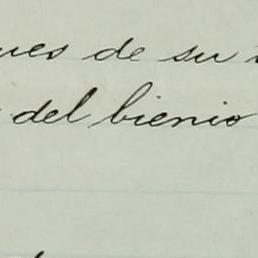 ues de su
del bienio